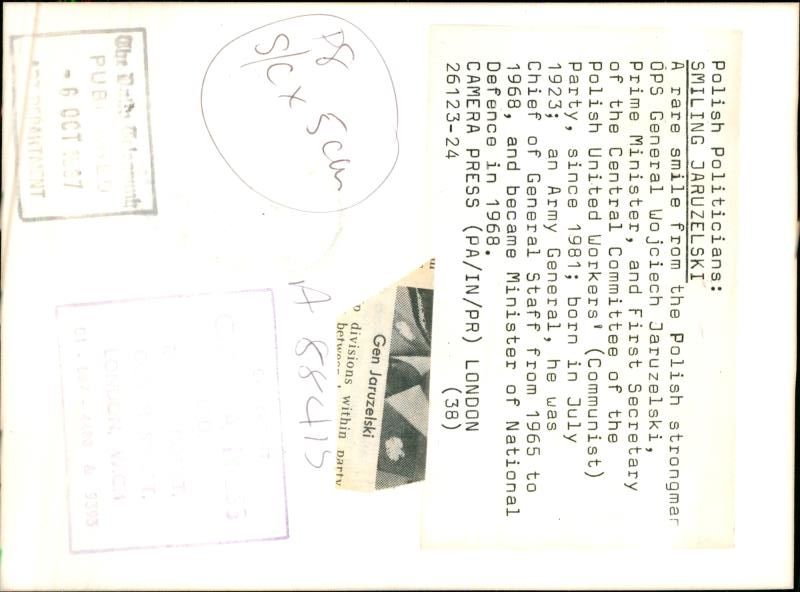 Polish Politicians:
SMILING JARUZELSKI
A rare smile from the Polish strongmar
OPS General Wojciech Jaruzelski,
Prime Minister, and First Secretary
of the Central Committee of the
Polish United Workers' (Communist)
Party, since 1981; born in July
1923; an Army General, he was
Chief of General Staff from 1965 to
1968, and became Minister of National
Defence in 1968.
CAMERA PRESS (PA/IN/PR) LONDON
26123-24 (38)
Gen Jaruzelski
divisions within party
between
S/C x 5cm
A 88415
The Daily Telegraph
PUBLISHED
- 6 OCT 1987
ART DEPARTMENT